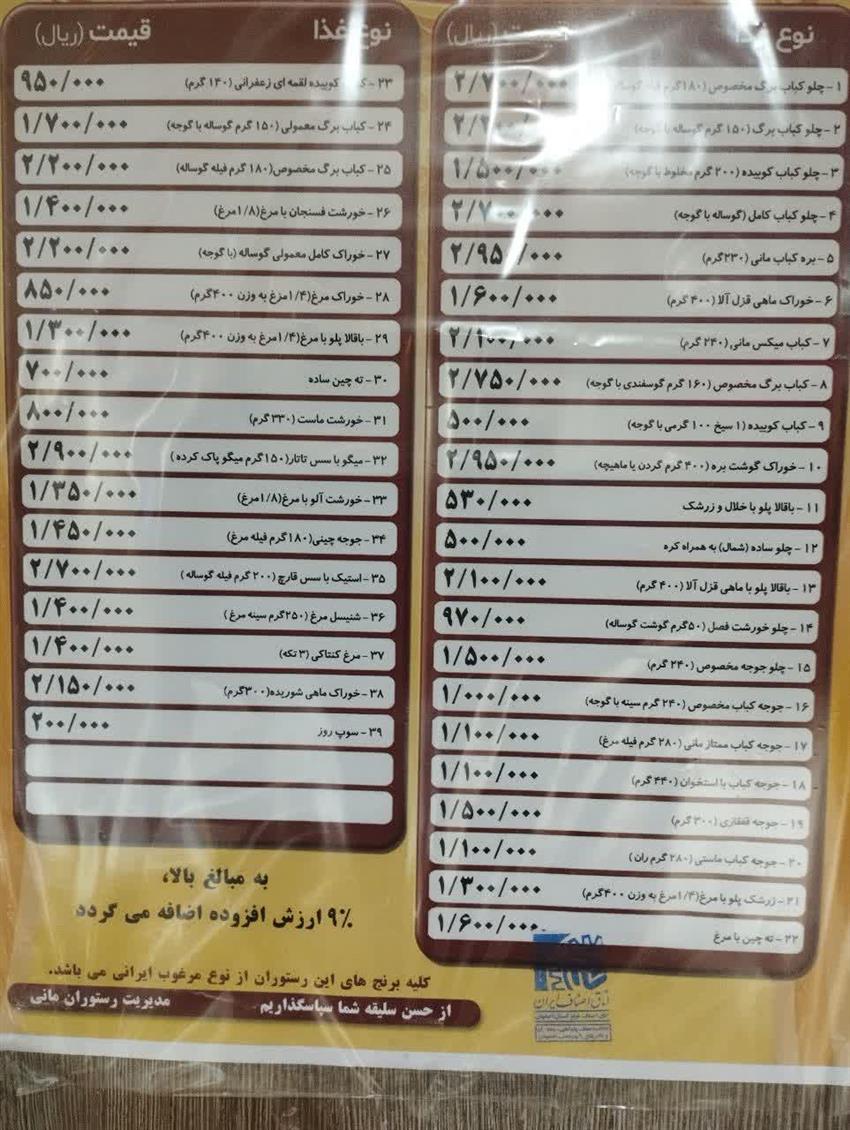 نوع غذا قیمت (ریال)
۱ - چلو کباب برگ مخصوص (۱۸۰گرم فیله گوساله ۲/۷۰۰/۰۰۰
۲ - چلو کباب برگ (۱۵۰ گرم گوساله با گوجه)
۳ - چلو کباب کوبیده (۲۰۰ گرم مخلوط با گوجه) ۱/۵۰۰/۰۰۰
۴ - چلو کباب کامل (گوساله با گوجه) ۲/۷۰۰/۰۰۰
۵ - بره کباب مانی (۲۳۰گرم) ۲/۹۵۰/۰۰۰
۶ - خوراک ماهی قزل آلا (۴۰۰ گرم) ۱/۶۰۰/۰۰۰
۷ - کباب میکس مانی (۲۴۰ گرم) ۲/۱۰۰/۰۰۰
۸ - کباب برگ مخصوص (۱۶۰ گرم گوسفندی با گوجه) ۲/۷۵۰/۰۰۰
۹ - کباب کوبیده (۱ سیخ ۱۰۰ گرمی با گوجه) ۵۰۰/۰۰۰
۱۰ - خوراک گوشت بره (۴۰۰ گرم گردن یا ماهیچه) ۲/۹۵۰/۰۰۰
۱۱ - باقالا پلو با خلال و زرشک ۵۳۰/۰۰۰
۱۲ - چلو ساده (شمال) به همراه کره ۵۰۰/۰۰۰
۱۳ - باقالا پلو با ماهی قزل آلا (۴۰۰ گرم) ۲/۱۰۰/۰۰۰
۱۴ - چلو خورشت فصل (۵۰گرم گوشت گوساله) ۹۷۰/۰۰۰
۱۵ - چلو جوجه مخصوص (۲۴۰ گرم) ۱/۵۰۰/۰۰۰
۱۶ - جوجه کباب مخصوص (۲۴۰ گرم سینه با گوجه) ۱/۰۰۰/۰۰۰
۱۷ - جوجه کباب ممتاز مانی (۲۸۰ گرم فیله مرغ) ۱/۱۰۰/۰۰۰
۱۸ - جوجه کباب با استخوان (۴۴۰ گرم) ۱/۱۰۰/۰۰۰
۱۹ - جوجه قفقازی (۳۰۰ گرم) ۱/۵۰۰/۰۰۰
۲۰ - جوجه کباب ماستی (۲۸۰ گرم ران) ۱/۱۰۰/۰۰۰
۲۱ - زرشک پلو با مرغ(۱/۴مرغ به وزن ۴۰۰گرم) ۱/۳۰۰/۰۰۰
۲۲ - ته چین با مرغ ۱/۶۰۰/۰۰۰
نوع غذا قیمت (ریال)
۲۳ - کباب کوبیده لقمه ای زعفرانی (۱۴۰ گرم) ۹۵۰/۰۰۰
۲۴ - کباب برگ معمولی (۱۵۰ گرم گوساله با گوجه) ۱/۷۰۰/۰۰۰
۲۵ - کباب برگ مخصوص(۱۸۰ گرم فیله گوساله) ۲/۲۰۰/۰۰۰
۲۶ - خورشت فسنجان با مرغ(۱/۸مرغ) ۱/۴۰۰/۰۰۰
۲۷ - خوراک کامل معمولی گوساله (با گوجه) ۲/۲۰۰/۰۰۰
۲۸ - خوراک مرغ(۱/۴مرغ به وزن ۴۰۰گرم) ۸۵۰/۰۰۰
۲۹ - باقالا پلو با مرغ(۱/۴مرغ به وزن ۴۰۰گرم) ۱/۳۰۰/۰۰۰
۳۰ - ته چین ساده ۷۰۰/۰۰۰
۳۱ - خورشت ماست (۳۳۰ گرم) ۸۰۰/۰۰۰
۳۲ - میگو با سس تاتار(۱۵۰گرم میگو پاک کرده ) ۲/۹۰۰/۰۰۰
۳۳ - خورشت آلو با مرغ(۱/۸مرغ) ۱/۳۵۰/۰۰۰
۳۴ - جوجه چینی(۱۸۰گرم فیله مرغ) ۱/۴۵۰/۰۰۰
۳۵ - استیک با سس قارچ (۲۰۰ گرم فیله گوساله ) ۲/۷۰۰/۰۰۰
۳۶ - شنیسل مرغ (۲۵۰گرم سینه مرغ ) ۱/۴۰۰/۰۰۰
۳۷ - مرغ کنتاکی (۳ تکه) ۱/۴۰۰/۰۰۰
۳۸ - خوراک ماهی شوریده(۳۰۰گرم) ۲/۱۵۰/۰۰۰
۳۹ - سوپ روز ۲۰۰/۰۰۰
به مبالغ بالا،
۹٪ ارزش افزوده اضافه می گردد
کلیه برنج های این رستوران از نوع مرغوب ایرانی می باشد.
از حسن سلیقه شما سپاسگذاریم مدیریت رستوران مانی
اتاق اصناف ایران